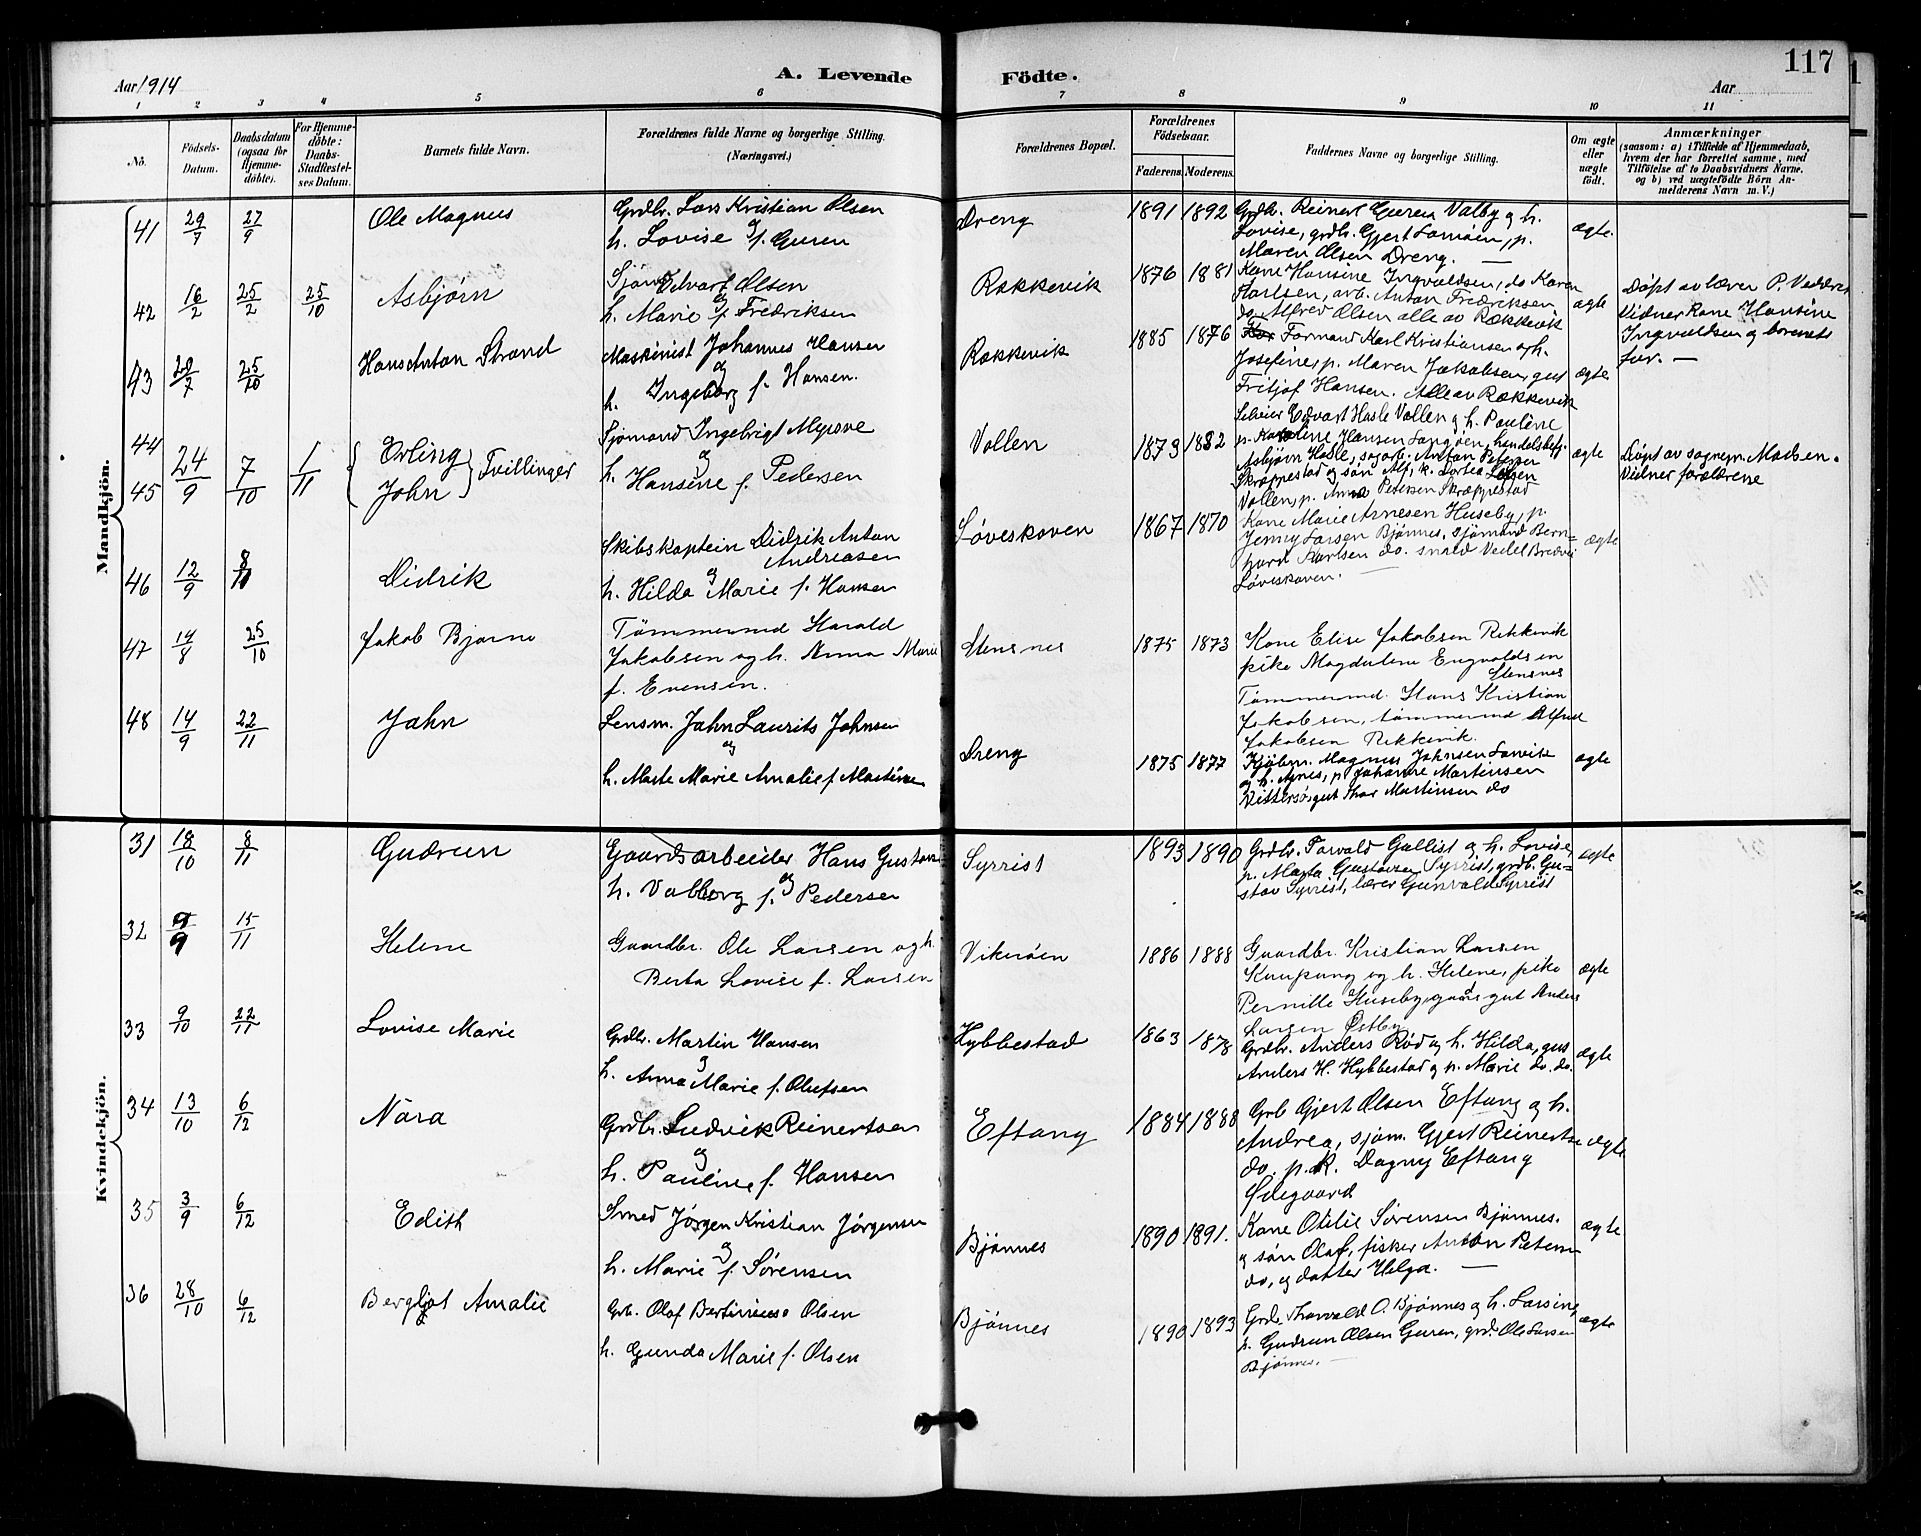 Aar 1914
A. Levende
Födte.
117
Aar
1 2 3 4 5 6 7 8 9 10 11
No.
Födsels-
Datum.
Daabsdatum
(ogsaa for
Hjemme-
döbte).
For Hjemme-
döbte:
Daabs-
Stadfæstel-
ses Datum.
Barnets fulde Navn.
Forældrenes fulde Navne og borgerlige Stilling.
(Næringsvei.)
Forældrenes Bopæl.
Forældrenes
Födselsaar.
Faderens.
Moderens.
Faddernes Navne og borgerlige Stilling.
Om ægte
eller
uægte
født.
Anmærkninger
(saasom: a) i Tilfælde af Hjemmedaab,
hvem der har forrettet samme, med
Tilføielse af to Daabsvidners Navne.
og b) ved uægtefödte Börn An-
melderens Navn m. V.)
Mandkjön.
41 29/7 27/9
Ole Magnus
Grdbr. Lars Kristian Olsen
og
h. Lovise f. Guren
Dreng
1891 1892
Grdbr. Reinert Guren Valby og h.
Lovise, grdb. Gjert Lamöen, p.
Maren Olsen Dreng.
ægte.
42 16/2 25/2 25/10
Asbjørn
Sjöm. Edvart Olsen
og
h. Marie f. Fredriksen
Rækkevik
1876 1881
Kone Hansine Ingvaldsen, do Karen
Karlsen, arb. Anton Fredriksen
do Alfred Olsen alle av Rækkevik
ægte
Døpt av lærer P. Vedderet
Vidner Kone Hansine
Ingvaldsen og barnets
far. —
43 29/7 25/10
Hans Anton Strand
Maskinist Johannes Hansen
og
h. Ingeborg f. Hansen.
Rækkevik
1885 1876
Formand Karl Kristiansen og h.
Josefine, p. Maren Jakobsen, gut
Fritjof Hansen. Alle av Rækkevik
ægte
44
45 24/9 7/10 1/11
Erling
John
Tvillinger
Sjømand Ingebrigt Myrove
og
h. Hansine f. Pedersen
Vollen
1879 1882
Selveier Edvart Hasle Vollen og h. Pauline
p. Karoline Hansen Langöen, handelsbetj.
Asbjørn Hasle, sagarb. Anton Petersen
Skræppestad og søn Alf, k. Dortea Larsen
Vollen, p. Anna Petersen Skræppestad
ægte
Döpt av sognepr. Madsen.
Vidner forældrene
46 12/9 8/11
Didrik
Skibskaptein Didrik Anton
Andreasen
og
h. Hilda Marie f. Hansen
Løveskoven
1867 1870
Kone Marie Arnesen Huseby, p.
Jenny Larsen Bjønnes, sjömand Bern-
hard Karlsen do. smed Vedel Bredvei
Løveskoven.
ægte
47 14/8 25/10
Jakob Bjarne
Tømmermd Harald
Jakobsen og h. Anna Marie
f. Evensen.
Stensnes
1875 1873
Kone Elise Jakobsen Rekkevik
pike Magdalene Engvoldsen
Stensnes
Tømmermd. Hans Kristian
Jakobsen, tømmermd Alfred
Jakobsen Rekkevik.
48 14/9 22/11
Jahn
Lensm. Jahn Laurits Johnsen
og
h. Marte Marie Amalie f. Martinsen
Dreng
1875 1877
Kjöbm. Magnus Johnsen Larvik
og h. Agnes, p. Johanne Martinsen
Vittersø, gut Thor Martinsen do
ægte
Kvindekjön.
31 18/10 8/11
Gudrun
Gaardsarbeider Hans Gustavsen
og
h. Valborg f. Pedersen
Syrrist
1893 1890
Grdbr. Torvald Gallist og h. Lovise,
p. Marta Gustavsen Syrrist, grdb. Gu-
stav Syrrist, lærer Gunvald Syrrist
ægte
32 9/9 15/11
Helene
Gaardbr. Ole Larsen og h.
Berta Lovise f. Larsen
Vikeröen
1886 1888
Gaardbr. Kristian Larsen
Kaupang og h. Helene, pike
Pernille Huseby, gaardgut Anders
Larsen Østby
ægte
33 9/10 22/11
Lovise Marie
Grdbr. Martin Hansen
og
h. Anna Marie f. Olufsen
Hybbestad
1863 1878
Grdbr. Anders Rød og h. Hilda, gut
Anders H. Hybbestad og p. Marie do. do.
ægte
34 13/10 6/12
Nora
Grdbr. Ludvik Reinertsen
og
h. Pauline f. Hansen
Eftang
1884 1888
Grb Gjert Olsen Eftang og h.
Andrea, sjöm. Gjert Reinertsen
do. p. R. Dagny Eftang
Ødegaard
ægte
35 3/9 6/12
Edith
Smed Jörgen Kristian Jörgensen
og
h. Marie f. Sørensen
Bjönnes
1890 1891.
Kone Otilie Sørensen Bjönnes.
og søn Olaf, fisker Anton Petersen
do, og datter Helga. —
ægte
36 28/10 6/12
Bergljot Amalie
Grb. Olaf Bertinius Olsen
h. Gunda Marie f. Olsen
Bjönnes
1890 1893
Grdb. Thorvald O. Bjönnes og h. Larsine,
p. Gudrun Olsen Guren, grd. Ole Larsen
Bjönnes. —
ægte